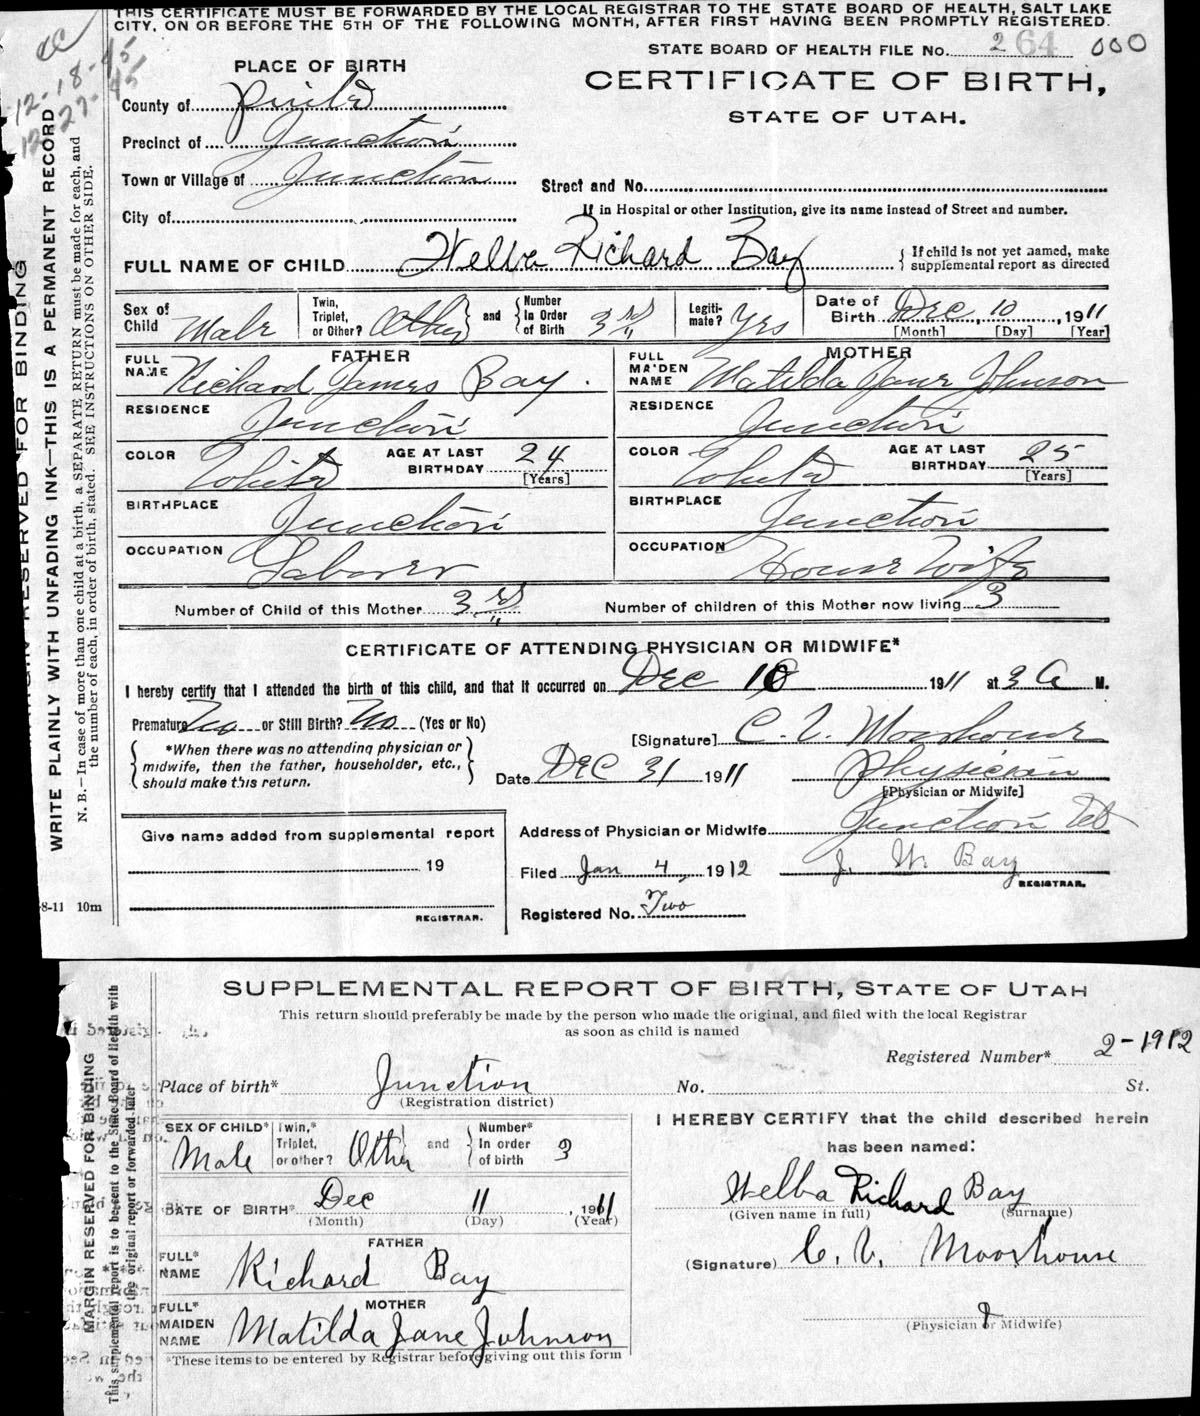 THIS CERTIFICATE MUST BE FORWARDED BY THE LOCAL REGISTRAR TO THE STATE BOARD OF HEALTH, SALT LAKE
CITY, ON OR BEFORE THE 5TH OF THE FOLLOWING MONTH, AFTER FIRST HAVING BEEN PROMPTLY REGISTERED.
12-18-45
12-27-45
STATE BOARD OF HEALTH FILE No. 2 64 000
PLACE OF BIRTH
CERTIFICATE OF BIRTH,
STATE OF UTAH.
County of Piute
Precinct of Junction
Town or Village of Junction
Street and No.
City of
If in Hospital or other Institution, give its name instead of Street and number.
FULL NAME OF CHILD Welba Richard Bay { If child is not yet named, make supplemental report as directed
Sex of Child Male Twin, Triplet, or Other? Other } and { Number In Order of Birth 3rd Legiti-mate? Yes Date of Birth Dec 10, 1911
[Month] [Day] [Year]
FATHER
FULL NAME Richard James Bay.
RESIDENCE Junction
COLOR White AGE AT LAST BIRTHDAY 24 [Years]
BIRTHPLACE Junction
OCCUPATION Laborer
MOTHER
FULL MAIDEN NAME Matilda Jane Johnson
RESIDENCE Junction
COLOR White AGE AT LAST BIRTHDAY 25 [Years]
BIRTHPLACE Junction
OCCUPATION House Wife
Number of Child of this Mother 3rd Number of children of this Mother now living 3
CERTIFICATE OF ATTENDING PHYSICIAN OR MIDWIFE*
I hereby certify that I attended the birth of this child, and that it occurred on Dec 10 1911 at 3 A M.
Premature No or Still Birth? No (Yes or No)
{ *When there was no attending physician or
midwife, then the father, householder, etc.,
should make this return. }
[Signature] C. V. Moorhouse
Date Dec 31 1911 Physician
[Physician or Midwife]
Give name added from supplemental report
19
REGISTRAR.
Address of Physician or Midwife Junction Ut
Filed Jan 4, 1912 J. W. Bay
REGISTRAR.
Registered No. Two
8-11 10m
MARGIN RESERVED FOR BINDING
WRITE PLAINLY WITH UNFADING INK—THIS IS A PERMANENT RECORD
N. B.—In case of more than one child at a birth, a SEPARATE RETURN must be made for each, and
the number of each, in order of birth, stated. SEE INSTRUCTIONS ON OTHER SIDE.
SUPPLEMENTAL REPORT OF BIRTH, STATE OF UTAH
This return should preferably be made by the person who made the original, and filed with the local Registrar
as soon as child is named
Registered Number* 2-1912
Place of birth* Junction No. St.
(Registration district)
SEX OF CHILD* Male Twin,* Triplet, or other? Other } and { Number* In order of birth 3
DATE OF BIRTH* Dec 11, 1911
(Month) (Day) (Year)
FATHER
FULL* NAME Richard Bay
MOTHER
FULL* MAIDEN NAME Matilda Jane Johnson
*These items to be entered by Registrar before giving out this form
I HEREBY CERTIFY that the child described herein
has been named:
Welba Richard Bay
(Given name in full) (Surname)
(Signature) C. V. Moorhouse
(Physician or Midwife)
MARGIN RESERVED FOR BINDING
This supplemental report is to be sent to the State Board of Health with
the original report or forwarded later